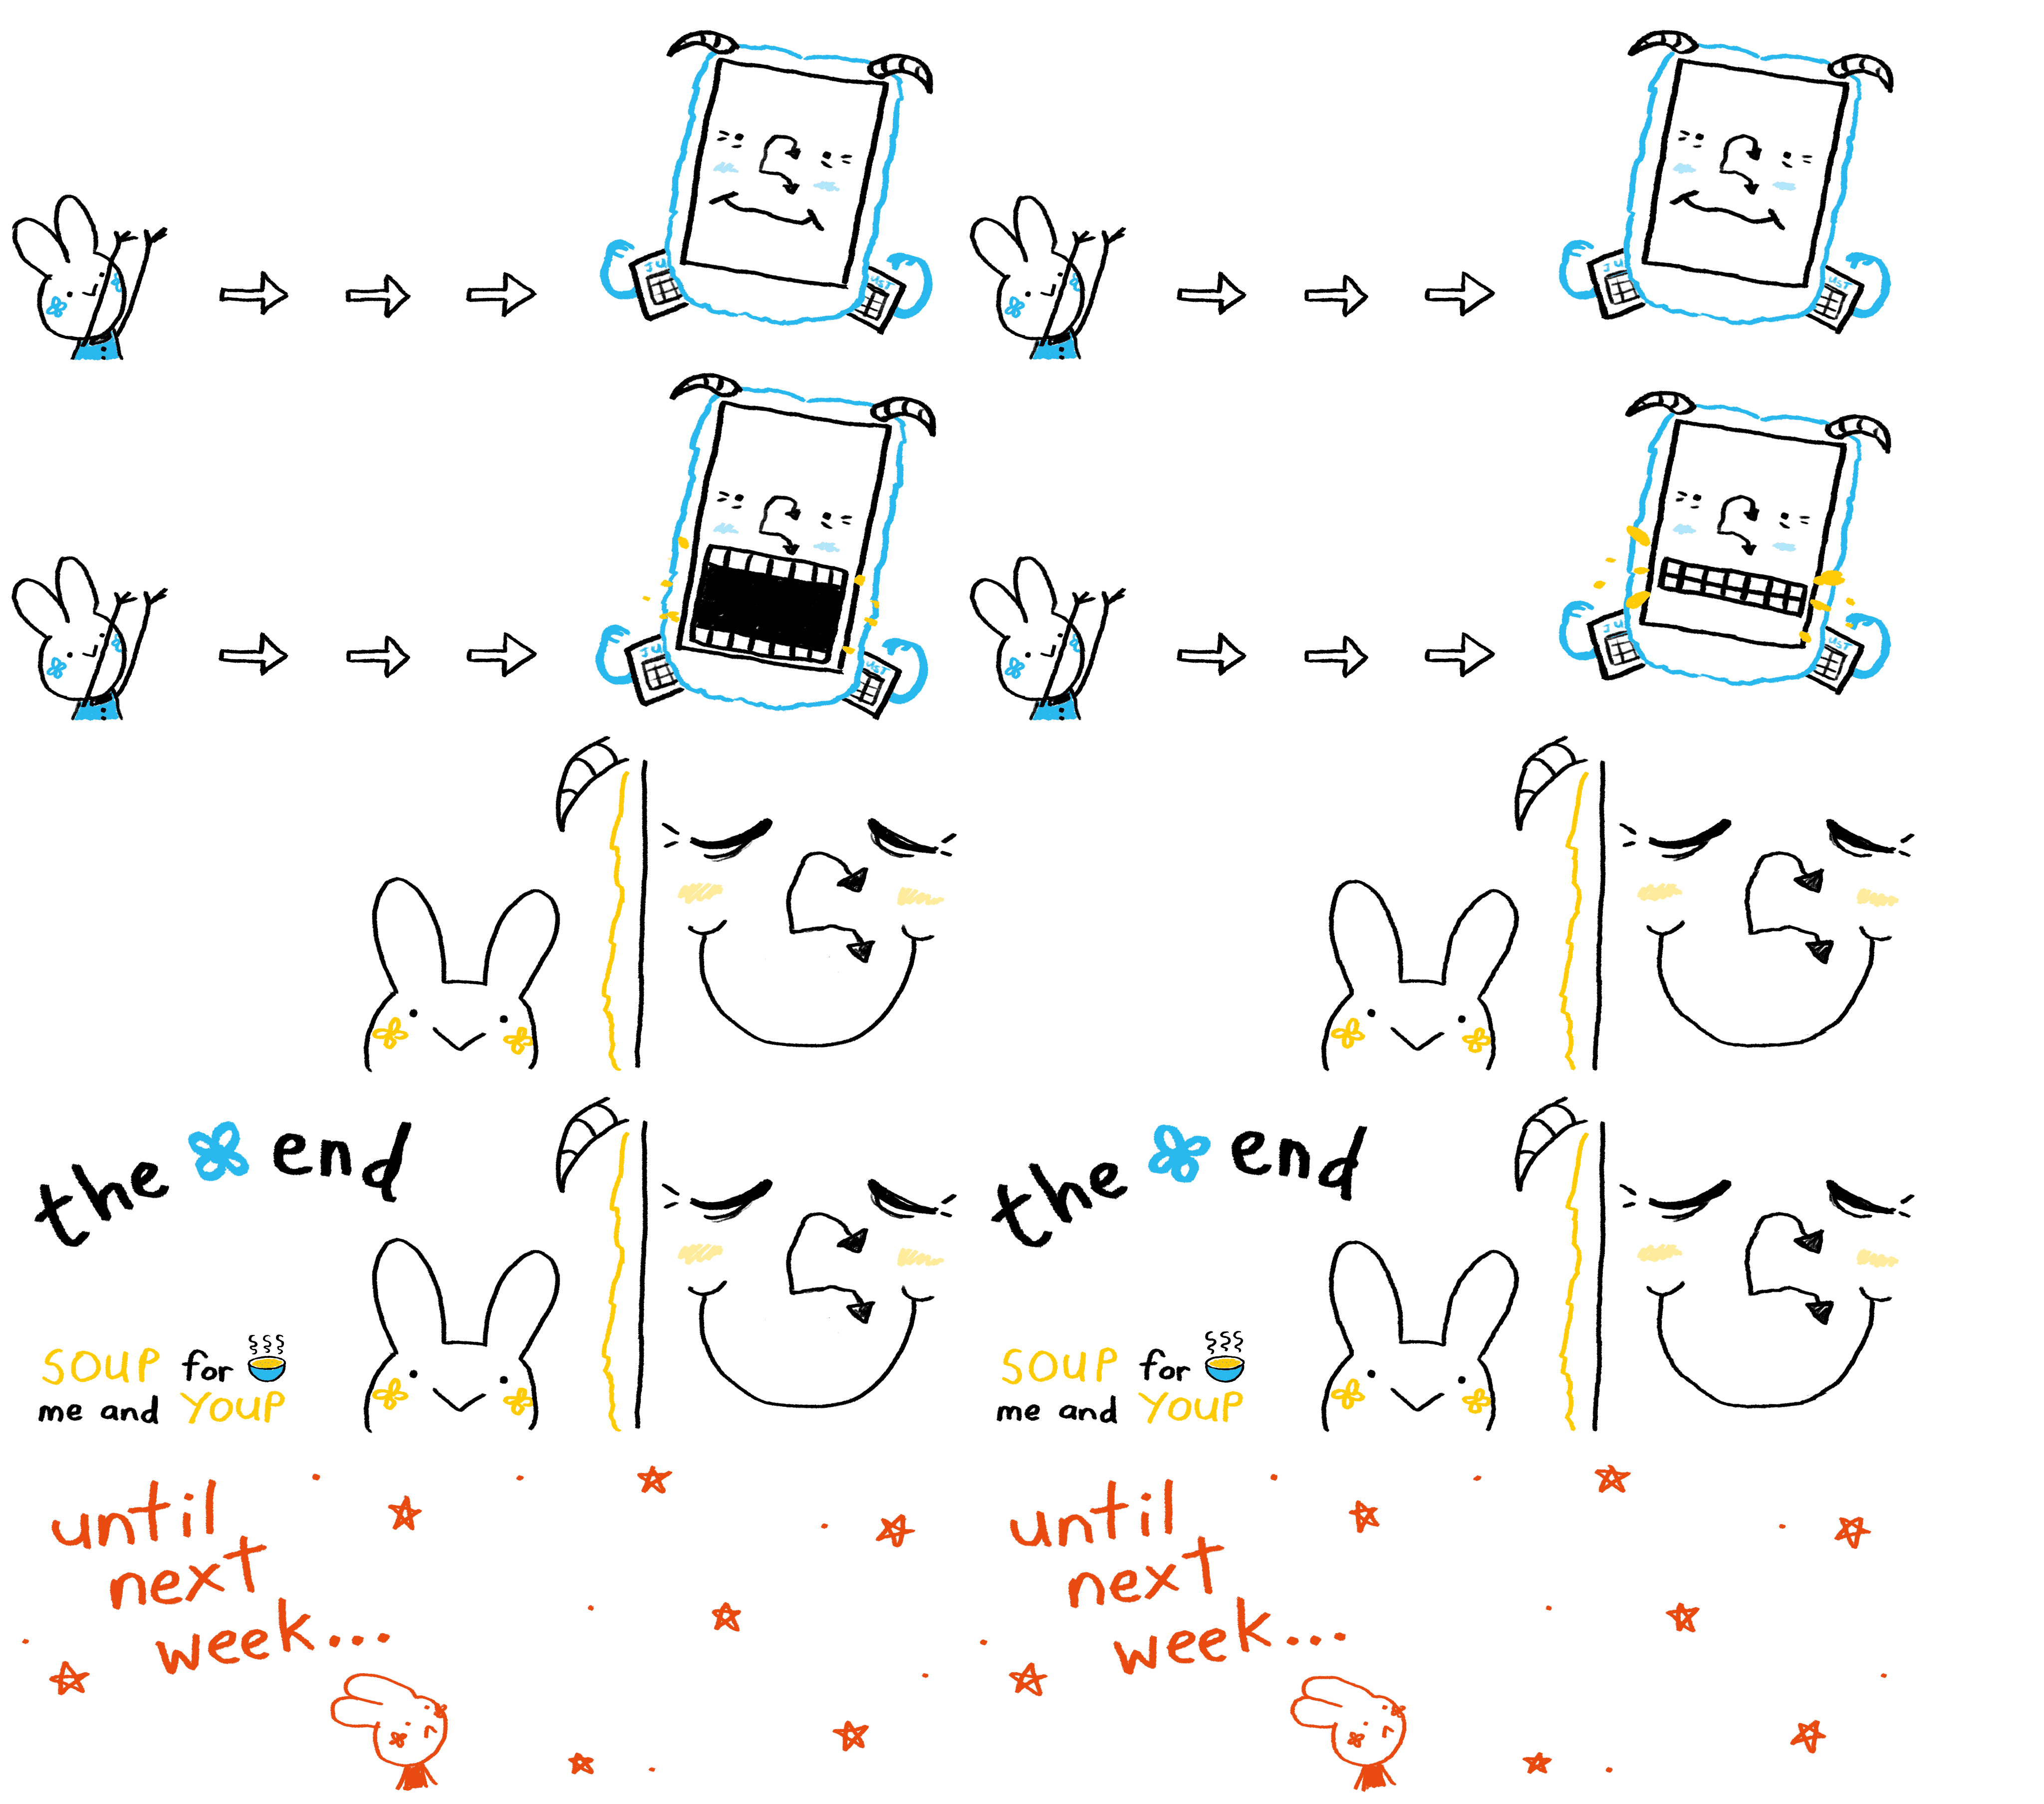 JU
UST
JU
UST
JU
UST
JU
UST
the end
SOUP for
me and YOUP
the end
SOUP for
me and YOUP
until
next
week...
until
next
week...